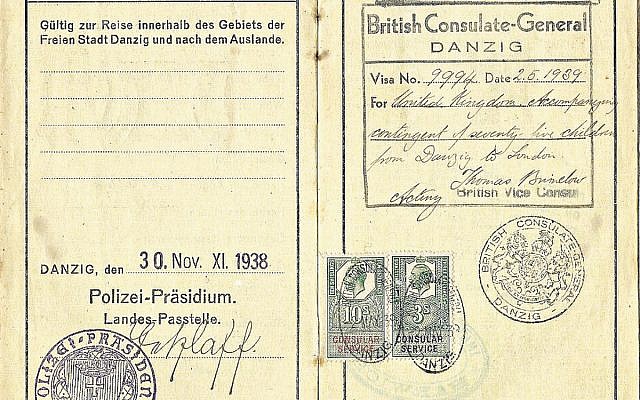 Gültig zur Reise innerhalb des Gebiets der
Freien Stadt Danzig und nach dem Auslande.
DANZIG, den 30. Nov. XI. 1938
Polizei-Präsidium.
Landes-Passtelle.
POLIZEI-PRÄSIDEN
British Consulate-General
DANZIG
Visa No. 9994 Date 2.5.1939
For United Kingdom. Accompanying
contingent of seventy-five children
from Danzig to London.
Thomas
Acting British Vice Consul
10s
CONSULAR
SERVICE
3s
CONSULAR
SERVICE
DANZIG
DANZIG
BRITISH CONSULATE-GENERAL
DANZIG